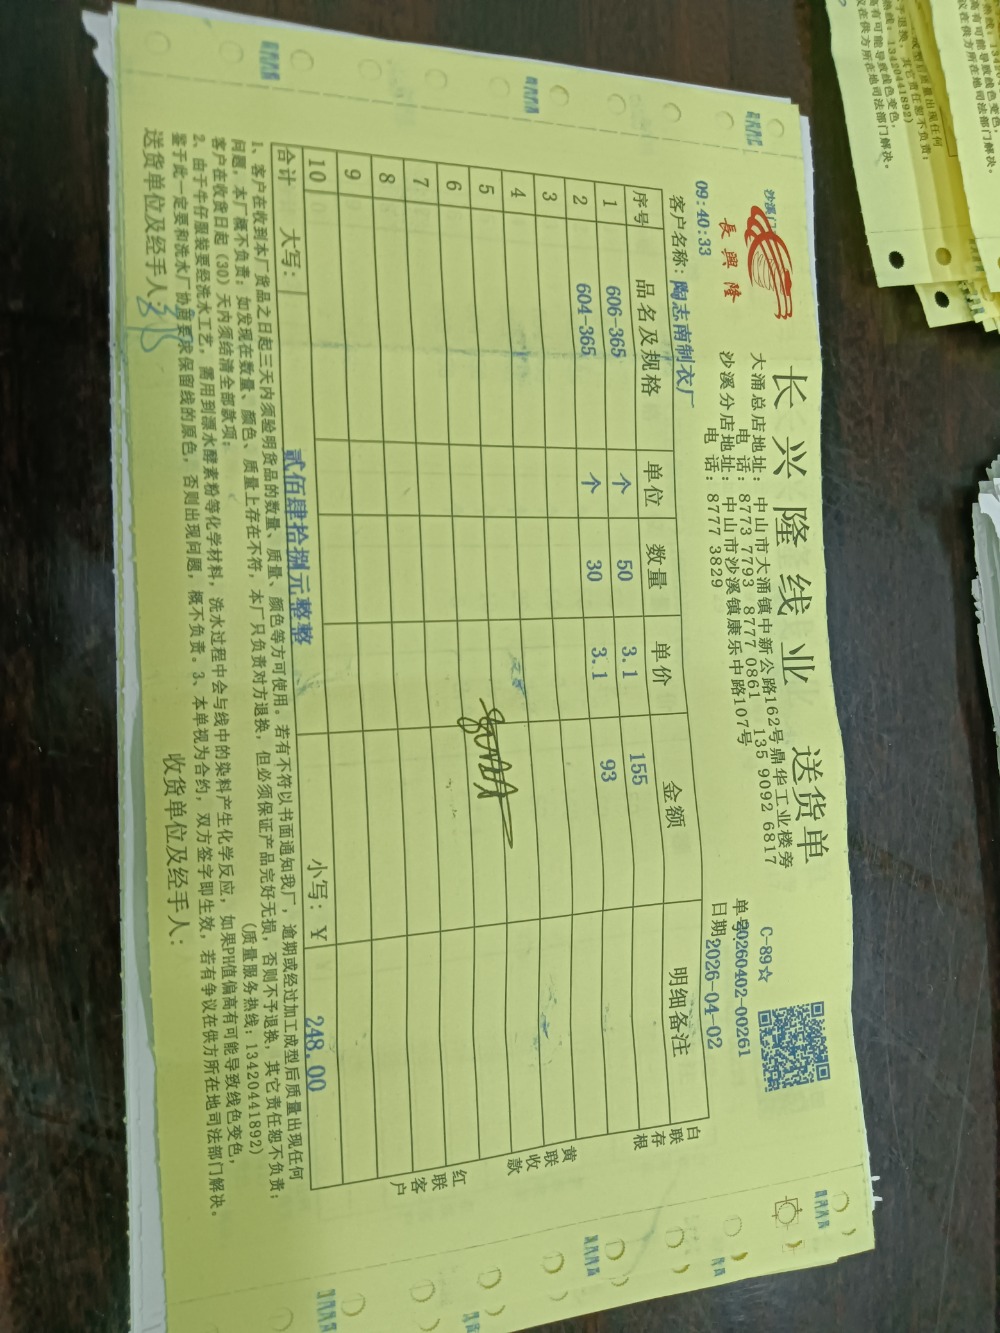 長興隆
长兴隆线业 送货单
大涌总店地址: 中山市大涌镇中新公路162号鼎华工业楼旁
电话: 8773 7793 8777 0861 135 9092 6817
沙溪分店地址: 中山市沙溪镇康乐中路107号
电话: 8777 3829
C-89☆
单号:20260402-00261
09:40:33
日期2026-04-02
客户名称: 陶志南制衣厂
序号 品名及规格 单位 数量 单价 金额 明细备注
1 606-365 个 50 3.1 155
2 604-365 个 30 3.1 93
3
4
5
6
7
8
9
10
合计 大写: 贰佰肆拾捌元整整 小写: ¥ 248.00
白联存根
黄联收款
红联客户
1、客户在收到本厂货品之日起三天内须验明货品的数量、质量、颜色等方可使用。若有不符以书面通知我厂,逾期或经过加工成型后质量出现任何
问题,本厂概不负责;如发现在数量、颜色、质量上存在不符,本厂只负责对方退换,但必须保证产品完好无损,否则不予退换,其它责任恕不负责;
客户在收货日起(30)天内须结清全部款项; (质量服务热线:13420441892)
2、由于牛仔服装要经洗水工艺,需用到漂水酵素粉等化学材料,洗水过程中会与线中的染料产生化学反应,如果PH值偏高有可能导致线色变色,
鉴于此一定要和洗水厂协商要求保留线的原色,否则出现问题,概不负责。3、本单视为合约,双方签字即生效,若有争议在供方所在地司法部门解决。
送货单位及经手人: 收货单位及经手人: